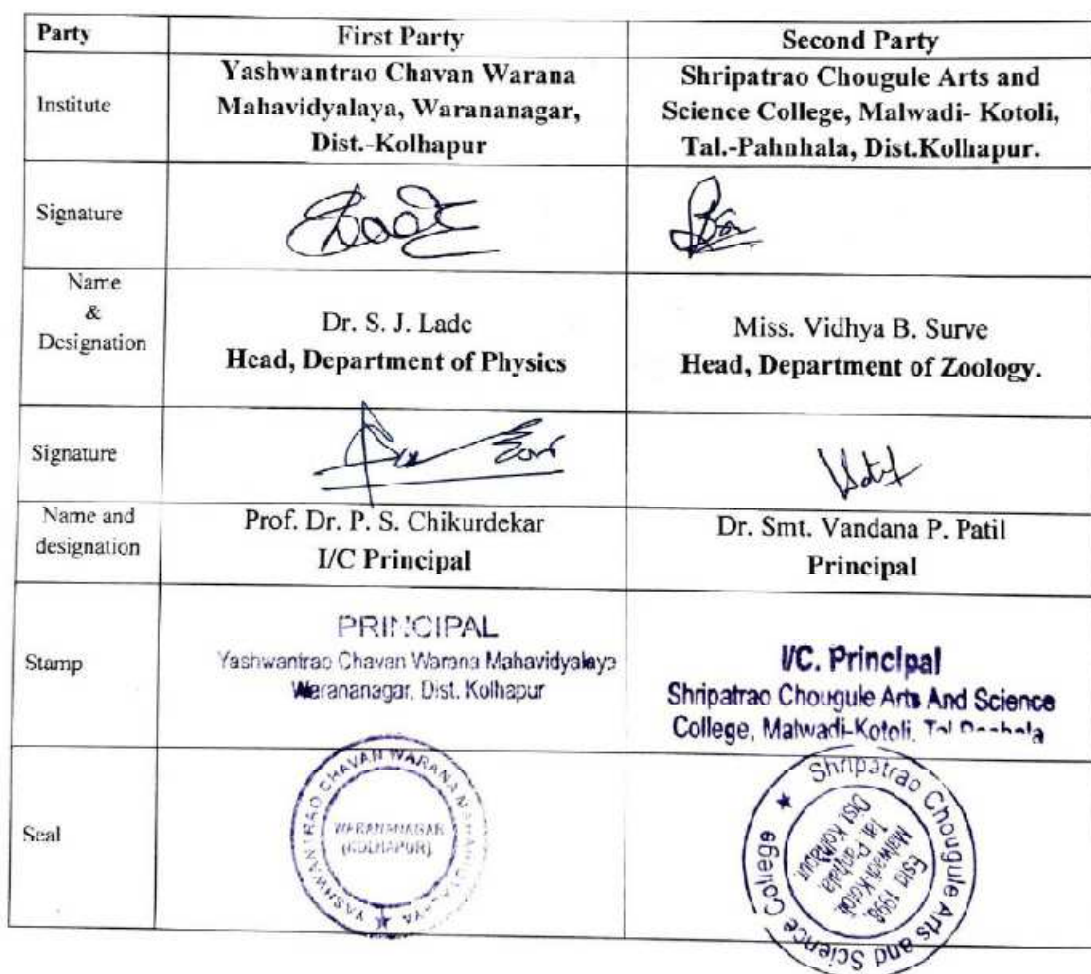 Party First Party Second Party
Institute
Yashwantrao Chavan Warana
Mahavidyalaya, Warananagar,
Dist.-Kolhapur
Shripatrao Chougule Arts and
Science College, Malwadi- Kotoli,
Tal.-Pahnhala, Dist.Kolhapur.
Signature
Name
&
Designation
Dr. S. J. Lade
Head, Department of Physics
Miss. Vidhya B. Surve
Head, Department of Zoology.
Signature
Name and
designation
Prof. Dr. P. S. Chikurdekar
I/C Principal
Dr. Smt. Vandana P. Patil
Principal
Stamp
PRINCIPAL
Yashwantrao Chavan Warana Mahavidyalaya
Warananagar, Dist. Kolhapur
I/C. Principal
Shripatrao Chougule Arts And Science
College, Malwadi-Kotoli, Tal
Seal
YASHWANTRAO CHAVAN WARANA MAHAVIDYALAYA
WARANANAGAR
(KOLHAPUR)
Shripatrao Chougule Arts and Science College
Estd 1998.
Malwadi-Kotoli,
Tal. Panhala
Dist. Kolhapur.